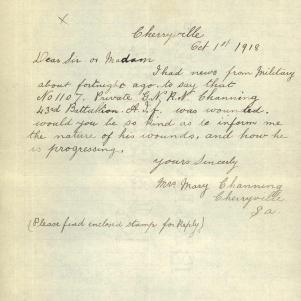 Cherryville
Oct 1st 1918
Dear Sir or Madam
I had news from Military
about fortnight ago to say that
No 1107. Private G.N.R.N. Channing
43rd Battalion. A.I.F. was wounded.
would you be so kind as to inform me
the nature of his wounds, and how he
is progressing.
Yours Sincerely
Mrs Mary Channing
Cherryville
S.a.
(Please find enclosed stamp for Reply)